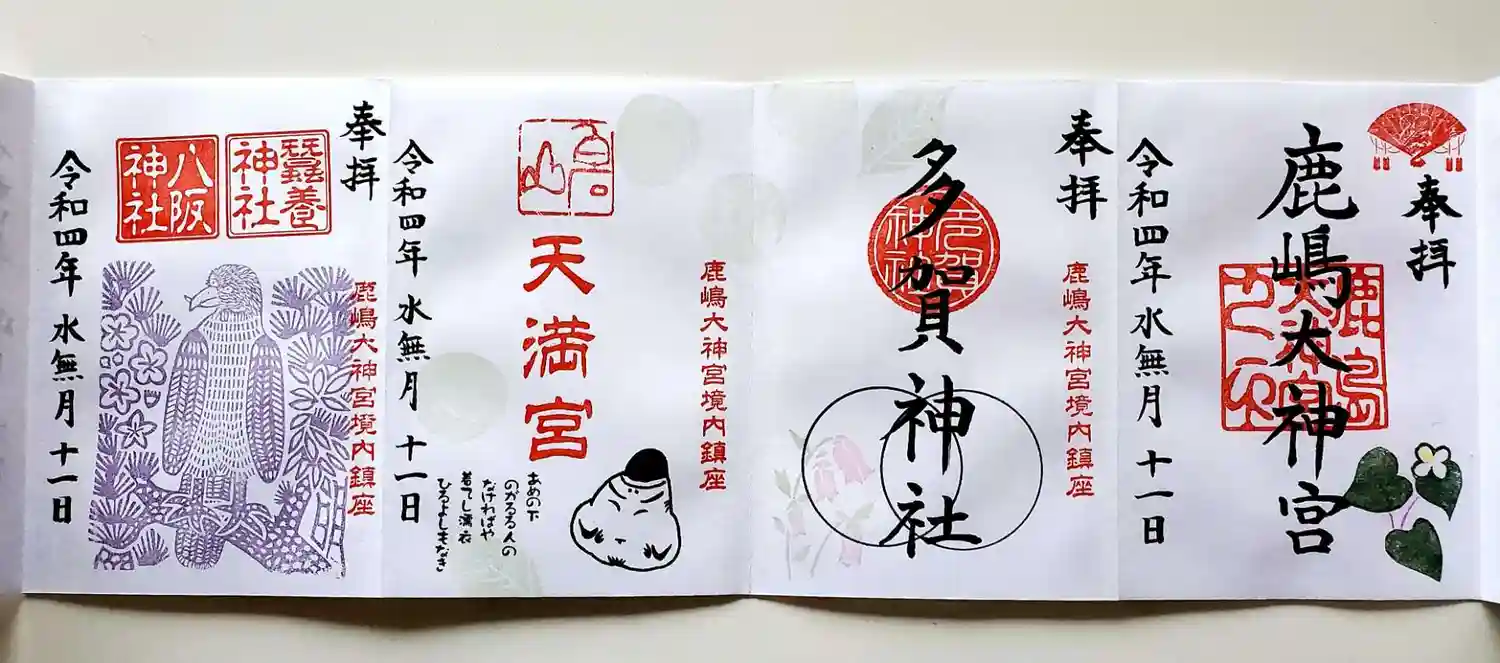 奉拝
鹿嶋大神宮
令和四年 水無月 十一日
奉拝
鹿嶋大神宮境内鎮座
多賀神社
多賀神社
鹿嶋大神宮境内鎮座
天満宮
あめの下
のがるる人の
なければや
着てし濡衣
ひるよしもなき
令和四年 水無月 十一日
奉拝
鹿嶋大神宮境内鎮座
蠶養神社
八阪神社
令和四年 水無月 十一日